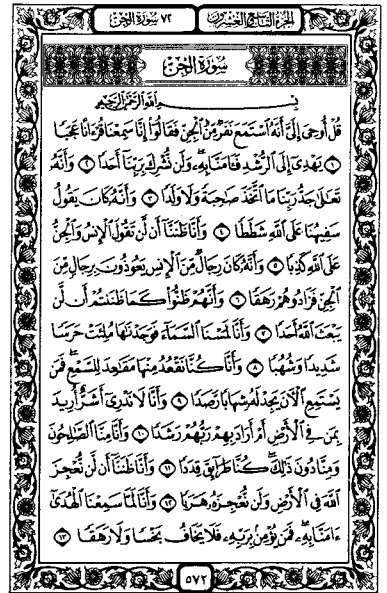 الجزء التاسع والعشرون ٧٢ سورة الجن
سورة الجن
بسم الله الرحمن الرحيم
قُلْ أُوحِىَ إِلَىَّ أَنَّهُ ٱسْتَمَعَ نَفَرٌ مِّنَ ٱلْجِنِّ فَقَالُوٓا۟ إِنَّا سَمِعْنَا قُرْءَانًا عَجَبًا
١ يَهْدِىٓ إِلَى ٱلرُّشْدِ فَـَٔامَنَّا بِهِۦ ۖ وَلَن نُّشْرِكَ بِرَبِّنَآ أَحَدًا ٢ وَأَنَّهُۥ
تَعَٰلَىٰ جَدُّ رَبِّنَا مَا ٱتَّخَذَ صَٰحِبَةً وَلَا وَلَدًا ٣ وَأَنَّهُۥ كَانَ يَقُولُ
سَفِيهُنَا عَلَى ٱللَّهِ شَطَطًا ٤ وَأَنَّا ظَنَنَّآ أَن لَّن تَقُولَ ٱلْإِنسُ وَٱلْجِنُّ
عَلَى ٱللَّهِ كَذِبًا ٥ وَأَنَّهُۥ كَانَ رِجَالٌ مِّنَ ٱلْإِنسِ يَعُوذُونَ بِرِجَالٍ مِّنَ
ٱلْجِنِّ فَزَادُوهُمْ رَهَقًا ٦ وَأَنَّهُمْ ظَنُّوا۟ كَمَا ظَنَنتُمْ أَن لَّن
يَبْعَثَ ٱللَّهُ أَحَدًا ٧ وَأَنَّا لَمَسْنَا ٱلسَّمَآءَ فَوَجَدْنَٰهَا مُلِئَتْ حَرَسًا
شَدِيدًا وَشُهُبًا ٨ وَأَنَّا كُنَّا نَقْعُدُ مِنْهَا مَقَٰعِدَ لِلسَّمْعِ ۖ فَمَن
يَسْتَمِعِ ٱلْـَٔانَ يَجِدْ لَهُۥ شِهَابًا رَّصَدًا ٩ وَأَنَّا لَا نَدْرِىٓ أَشَرٌّ أُرِيدَ
بِمَن فِى ٱلْأَرْضِ أَمْ أَرَادَ بِهِمْ رَبُّهُمْ رَشَدًا ١٠ وَأَنَّا مِنَّا ٱلصَّٰلِحُونَ
وَمِنَّا دُونَ ذَٰلِكَ ۖ كُنَّا طَرَآئِقَ قِدَدًا ١١ وَأَنَّا ظَنَنَّآ أَن لَّن نُّعْجِزَ
ٱللَّهَ فِى ٱلْأَرْضِ وَلَن نُّعْجِزَهُۥ هَرَبًا ١٢ وَأَنَّا لَمَّا سَمِعْنَا ٱلْهُدَىٰٓ
ءَامَنَّا بِهِۦ ۖ فَمَن يُؤْمِنۢ بِرَبِّهِۦ فَلَا يَخَافُ بَخْسًا وَلَا رَهَقًا ١٣
٥٧٢